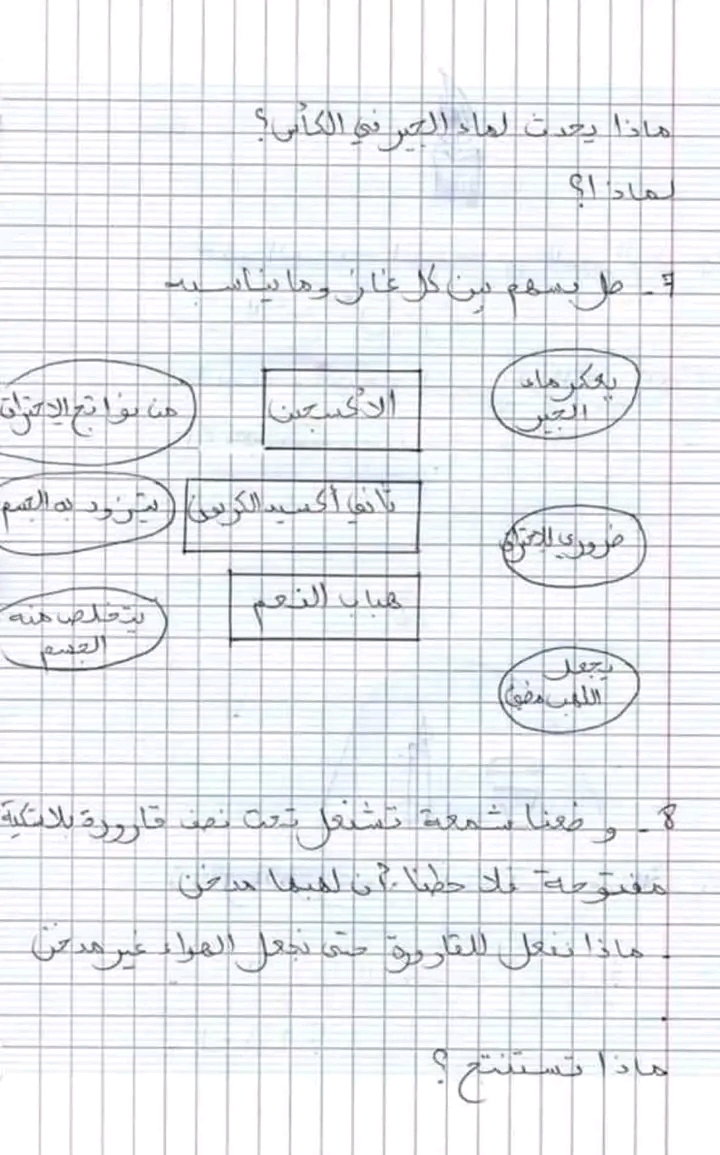 ماذا يحدث لماء الجير في الكأس؟
لماذا؟
7- صل بسهم بين كل غاز وما يناسبه
يعكر ماء
الجير
الأكسجين
من نواتج الاحتراق
ضروري للاحتراق
ثاني أكسيد الكربون
يتزود به الجسم
يجعل
اللهب مضيئ
هباب الفحم
يتخلص منه
الجسم
8- وضعنا شمعة تشتعل تحت نصف قارورة بلاستكية
مفتوحة فلاحظنا أن لهبها مدخن
. ماذا نفعل للقارورة حتى نجعل الهواء غير مدخن
.
ماذا تستنتج؟